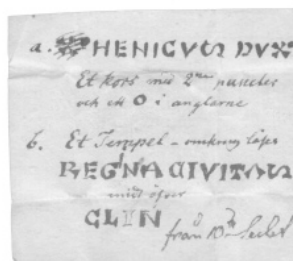 a. HENICVS DVX
Et kors med 2ne puncter
och ett O i anglarne
b. Et Tempel - omkring läses
REGNA CIVITAS
midt öfver
CLIN
från